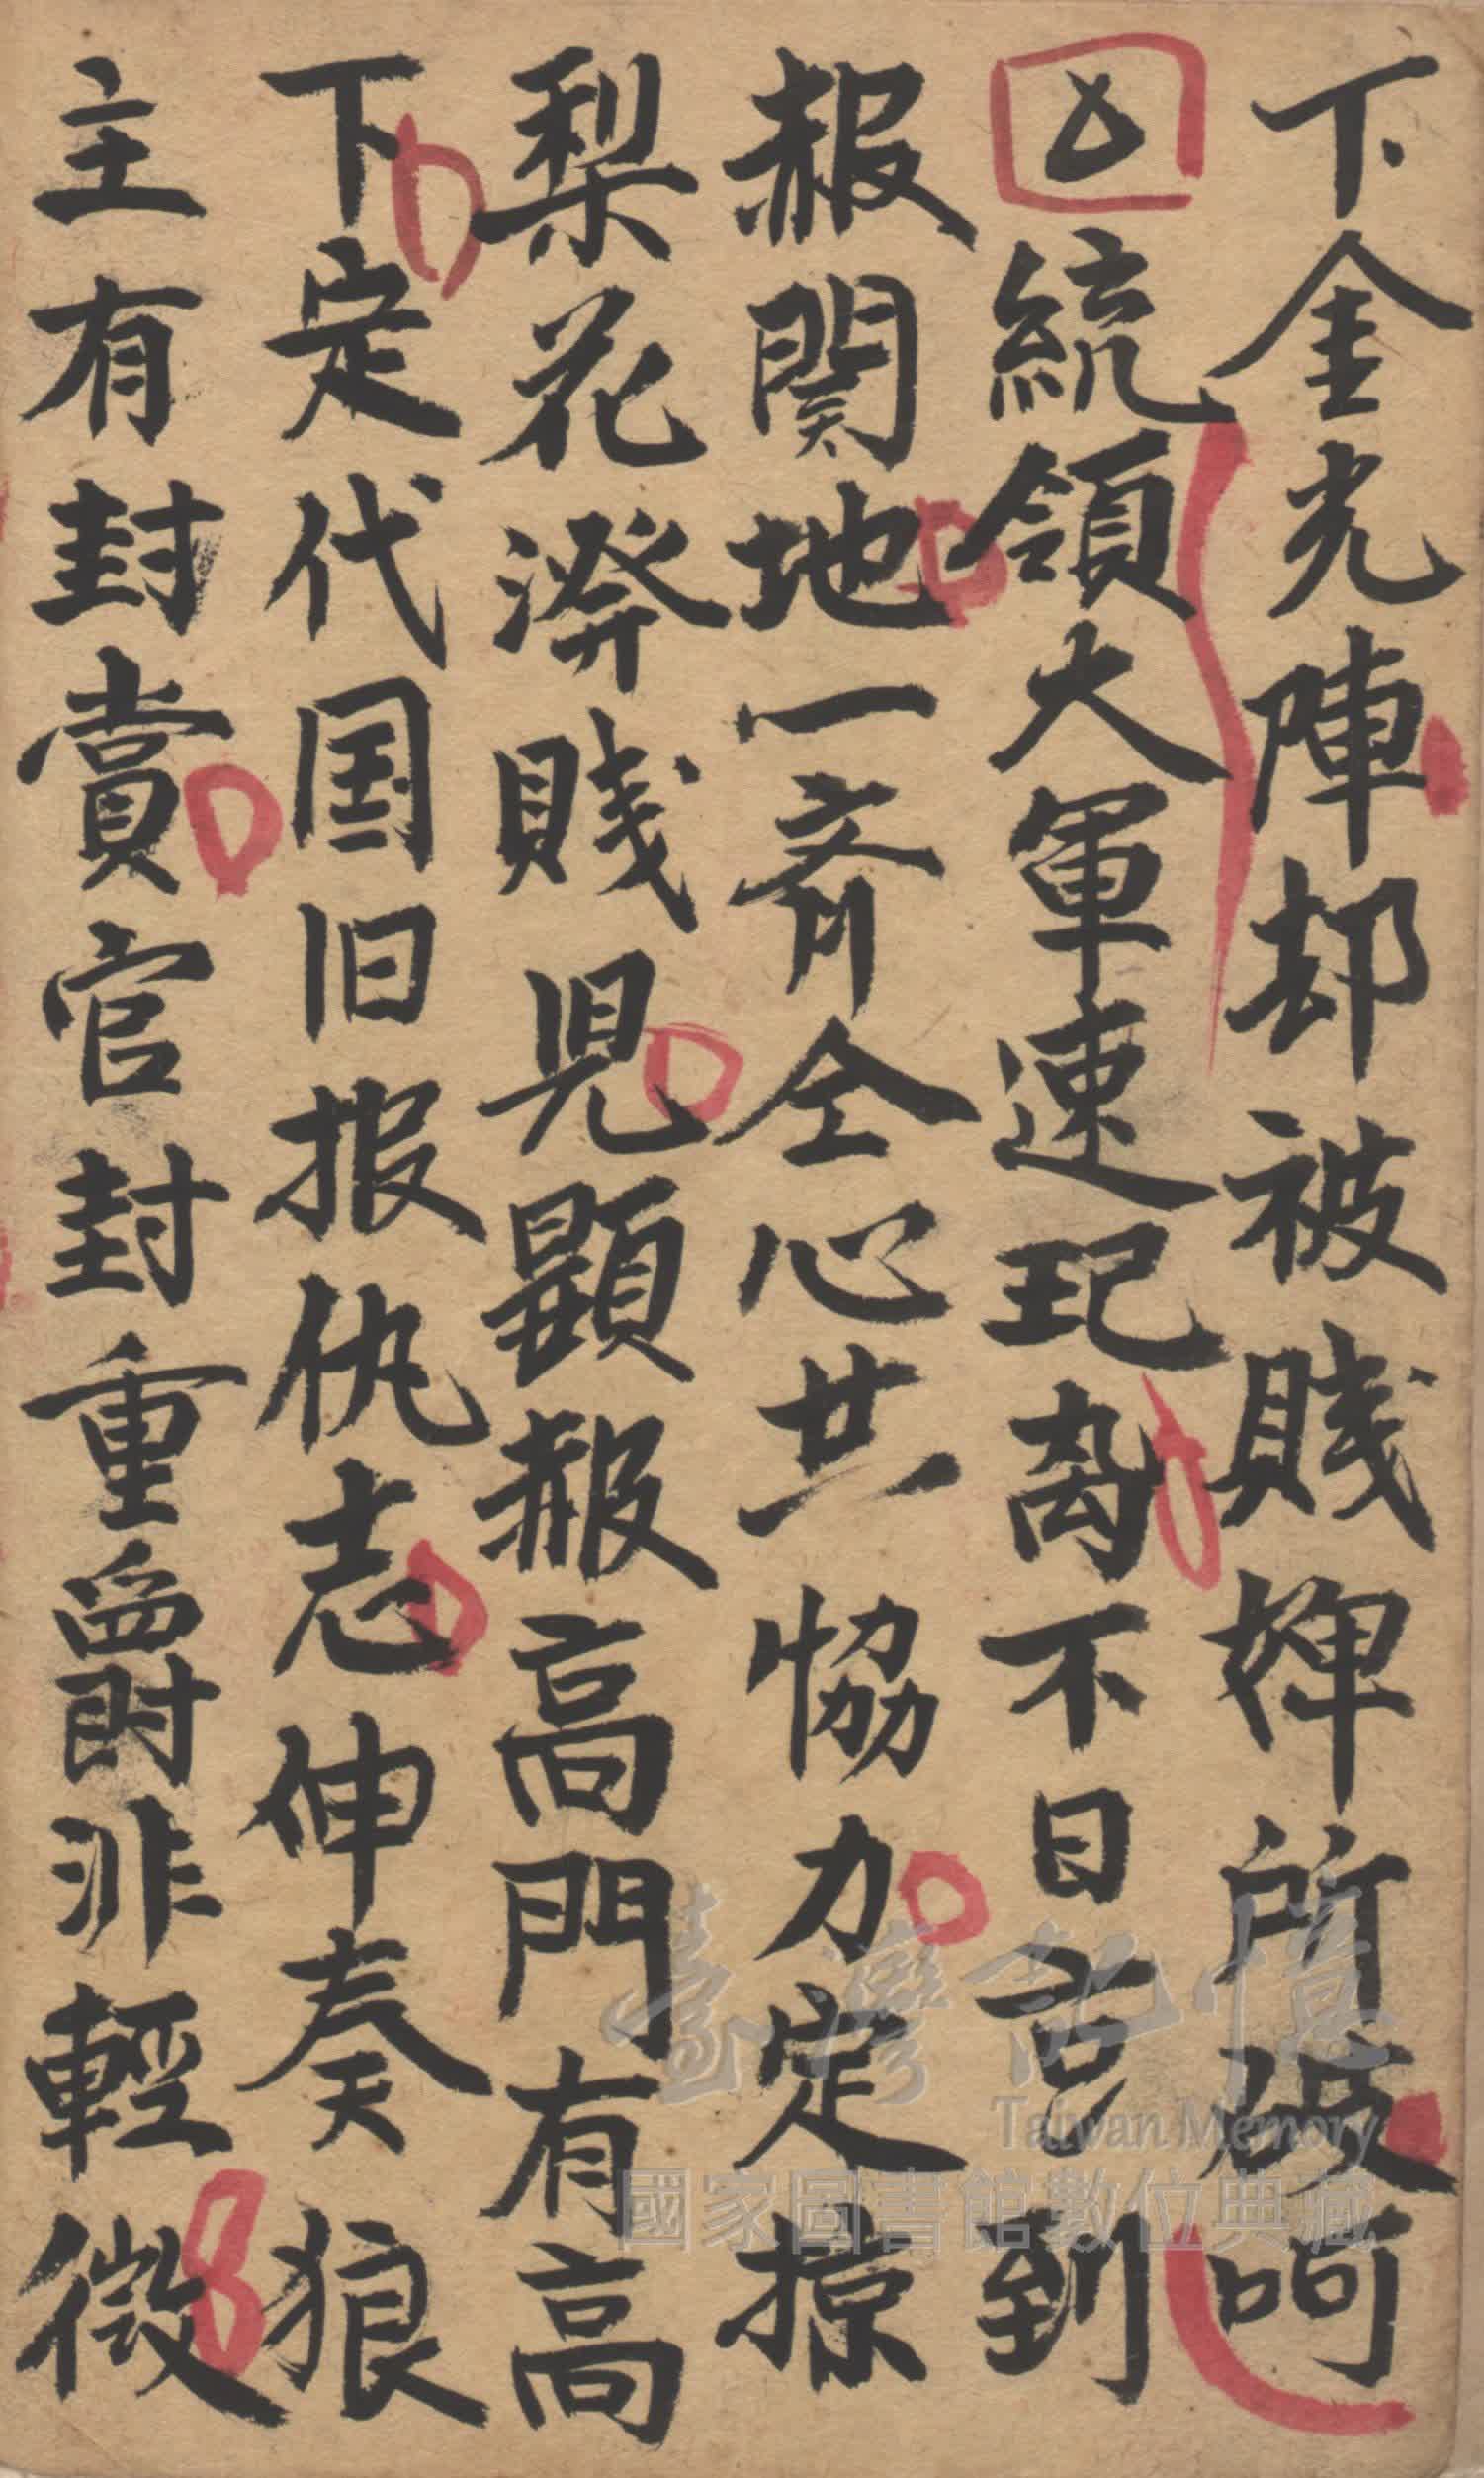 下金光陣却被賤婢所破呵
统領大軍速起离不日言到
赧関地一齊仝心共恊力定掠
梨花潑賤児顕赧高門有高
下定代国旧报仇志伸奏狼
主有封賞官封重爵非輕微
臺灣記憶
Taiwan Memory
國家圖書館數位典藏